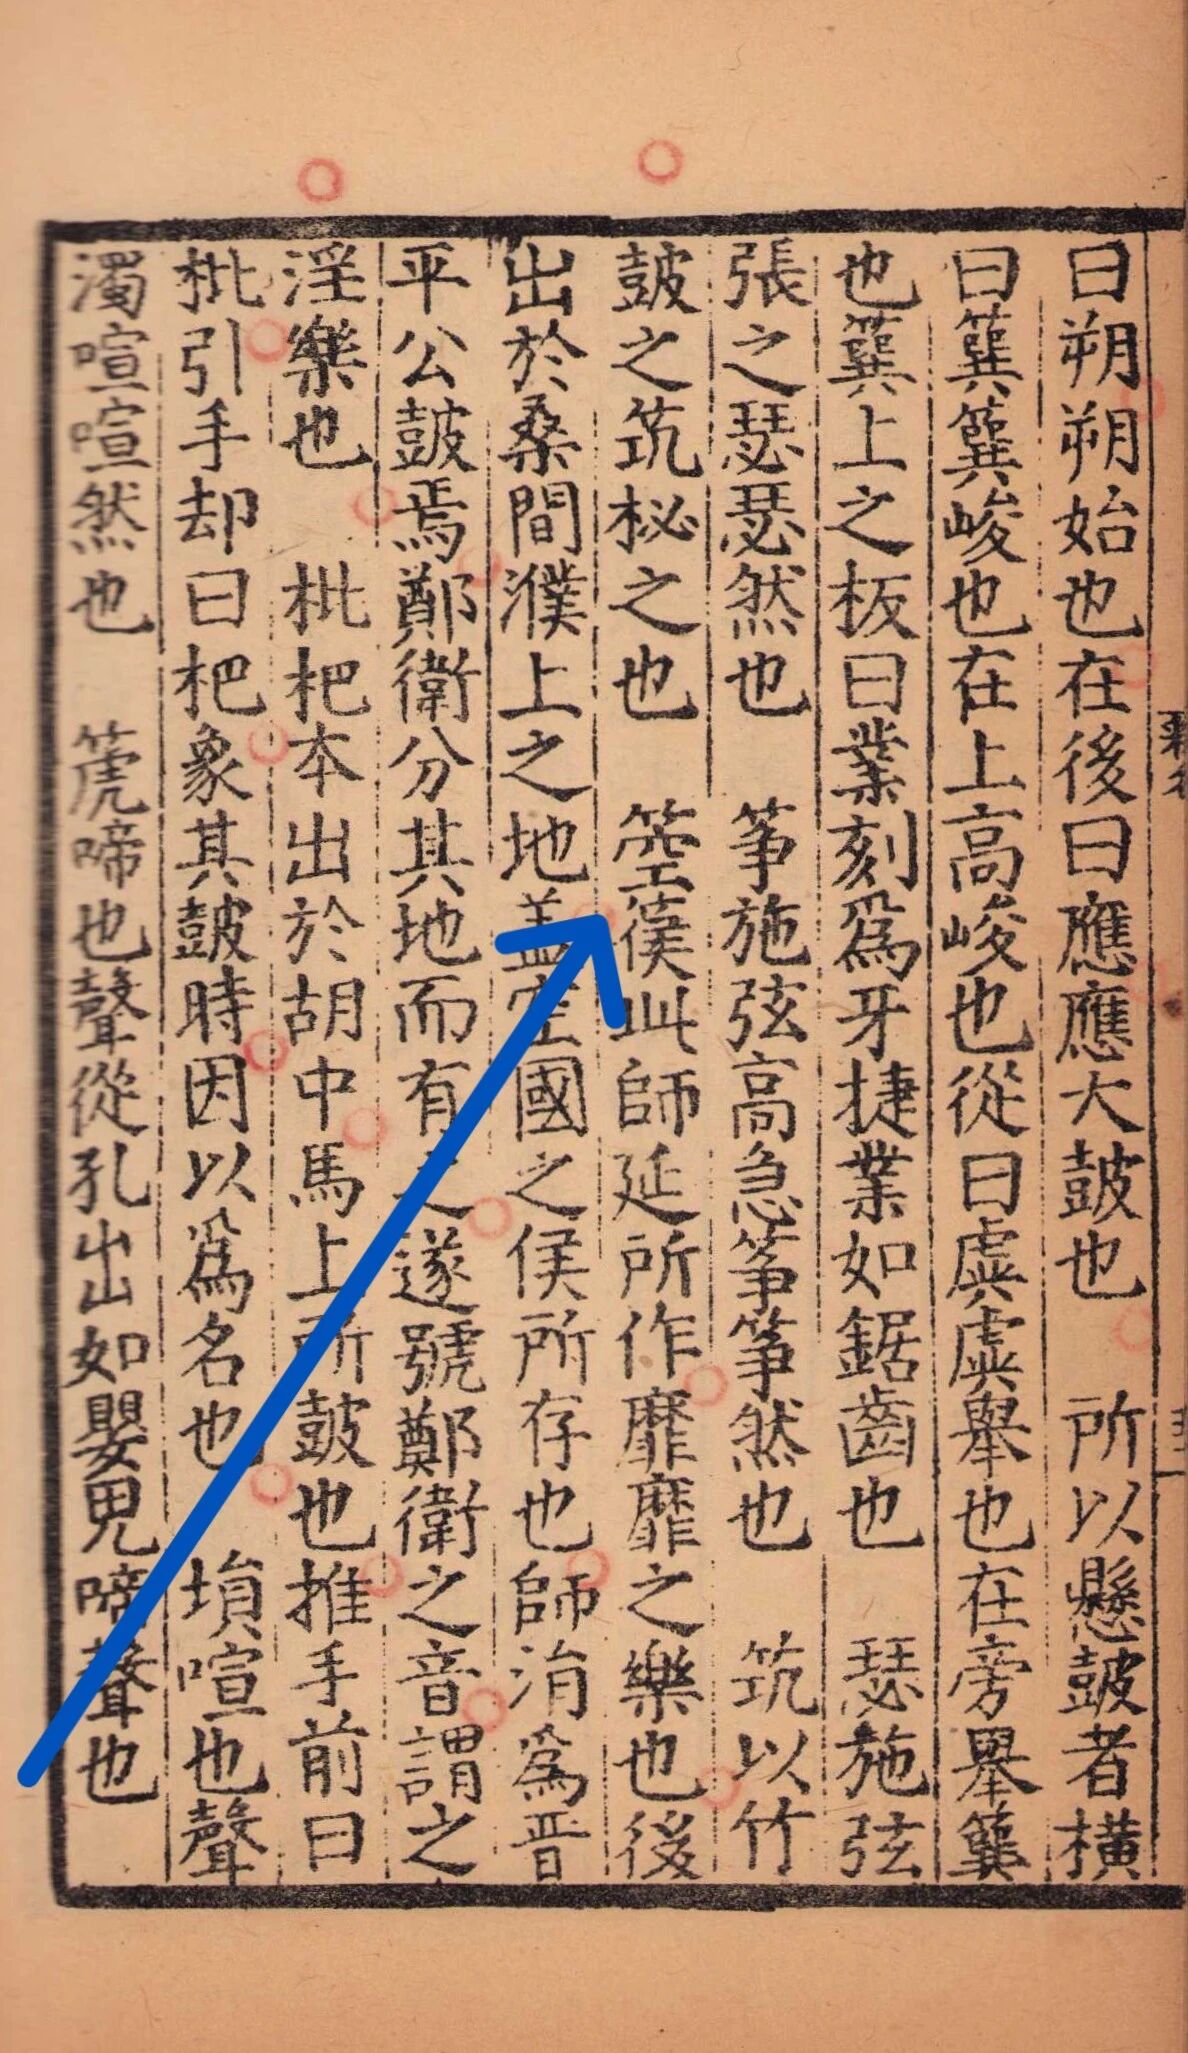 曰朔朔始也在後曰應應大皷也　所以懸皷者橫
曰簨簨峻也在上高峻也從曰虡虡舉也在旁舉簨
也簨上之板曰業刻爲牙捷業如鋸齒也　瑟施弦
張之瑟瑟然也　筝施弦高急筝筝然也　筑以竹
皷之筑柲之也　箜篌此師延所作靡靡之樂也後
出於桑間濮上之地盖空國之侯所存也師涓爲晋
平公皷焉鄭衛分其地而有之遂號鄭衛之音謂之
淫樂也　枇杷本出於胡中馬上所皷也推手前曰
枇引手却曰杷象其皷時因以爲名也　塤喧也聲
濁喧喧然也　箎啼也聲從孔出如嬰兒啼聲也